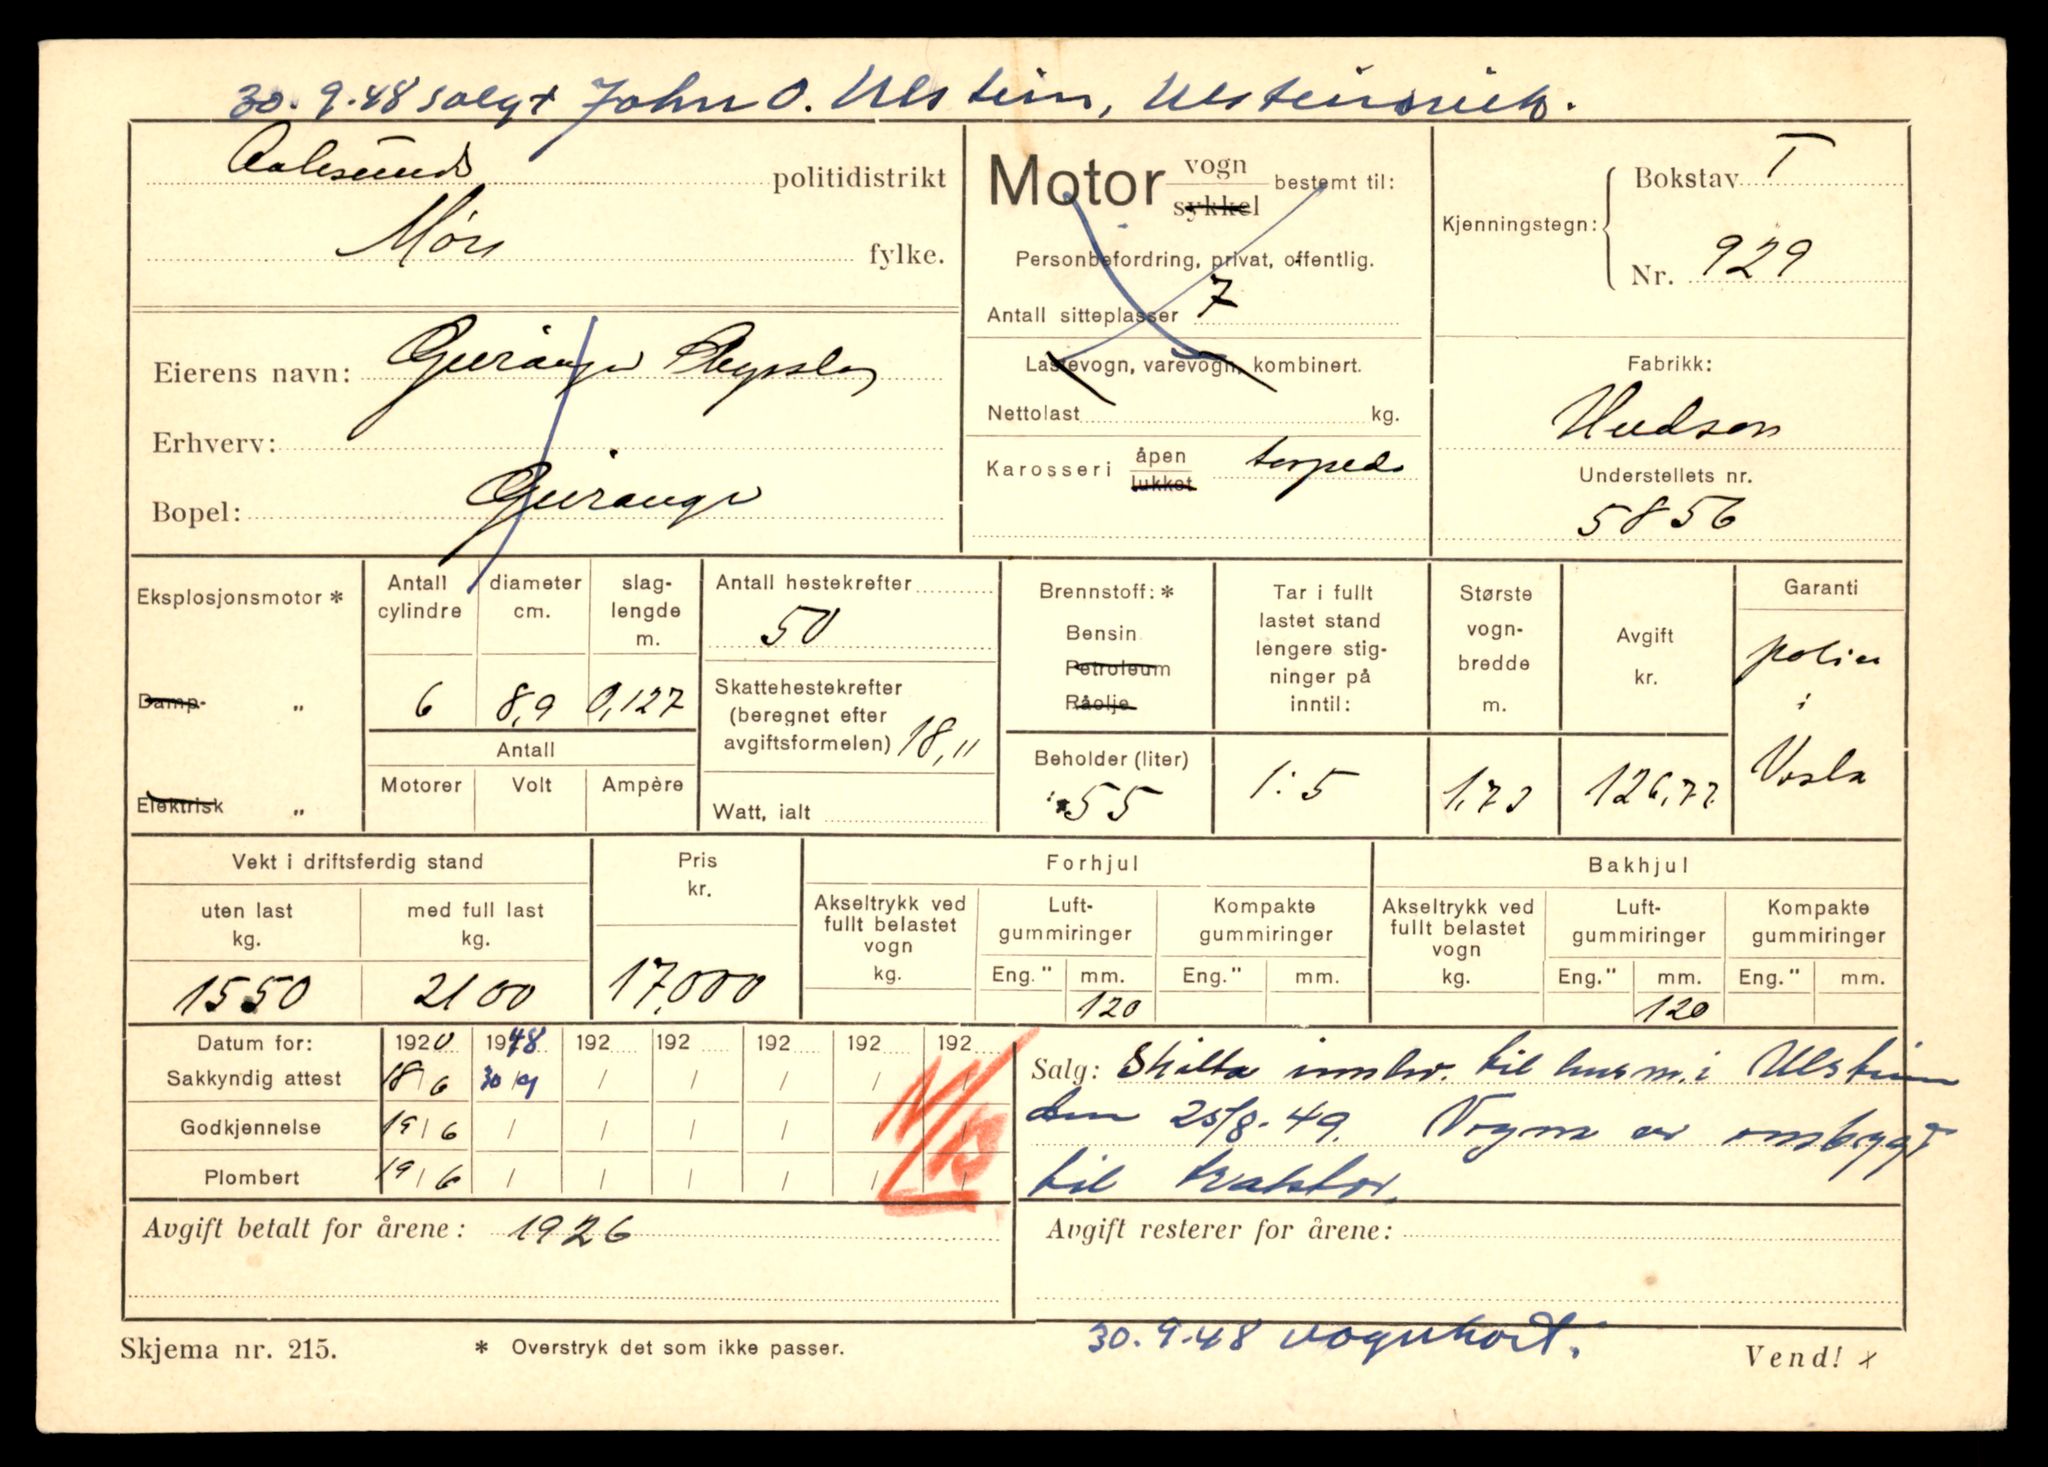 30.9.48 solgt John O. Ulstein, Ulsteinvik.
Aalesunds politidistrikt
Møre fylke.
Motor vogn sykkel bestemt til:
Personbefordring, privat, offentlig.
Antall sitteplasser 7
Lastevogn, varevogn, kombinert.
Nettolast kg.
Karosseri åpen lukket torpedo
Kjenningstegn: Bokstav T
Nr. 929
Eierens navn: Geiranger
Erhverv:
Bopel: Geiranger
Fabrikk:
Hudson
Understellets nr.
5856
Eksplosjonsmotor *
Damp- "
Elektrisk "
Antall cylindre
6
diameter cm.
8,9
slaglengde m.
0,127
Antall
Motorer Volt Ampère
Antall hestekrefter
50
Skattehestekrefter
(beregnet efter
avgiftsformelen) 18,11
Watt, ialt
Brennstoff: *
Bensin
Petroleum
Råolje
Beholder (liter)
55
Tar i fullt
lastet stand
lengere stig-
ninger på
inntil:
1:5
Største
vogn-
bredde
m.
1,73
Avgift
kr.
126,77
Garanti
polise
i
Vesta
Vekt i driftsferdig stand
uten last
kg.
1550
med full last
kg.
2100
Pris
kr.
17,000
Forhjul
Akseltrykk ved
fullt belastet
vogn
kg.
Luft-
gummiringer
Eng." mm.
120
Kompakte
gummiringer
Eng." mm.
Bakhjul
Akseltrykk ved
fullt belastet
vogn
kg.
Luft-
gummiringer
Eng." mm.
120
Kompakte
gummiringer
Eng." mm.
Datum for: 1920 1948 192 192 192 192 192
Sakkyndig attest 18/6 30/9 / / / / /
Godkjennelse 19/6 / / / / / /
Plombert 19/6 / / / / / /
Salg: Skilta innlev. til lensm. i Ulstein
den 25/8-49. Vogna er ombygt
til traktor.
Avgift betalt for årene: 1926
Avgift resterer for årene:
30.9.48 vognkort.
Skjema nr. 215.
* Overstryk det som ikke passer.
Vend! x